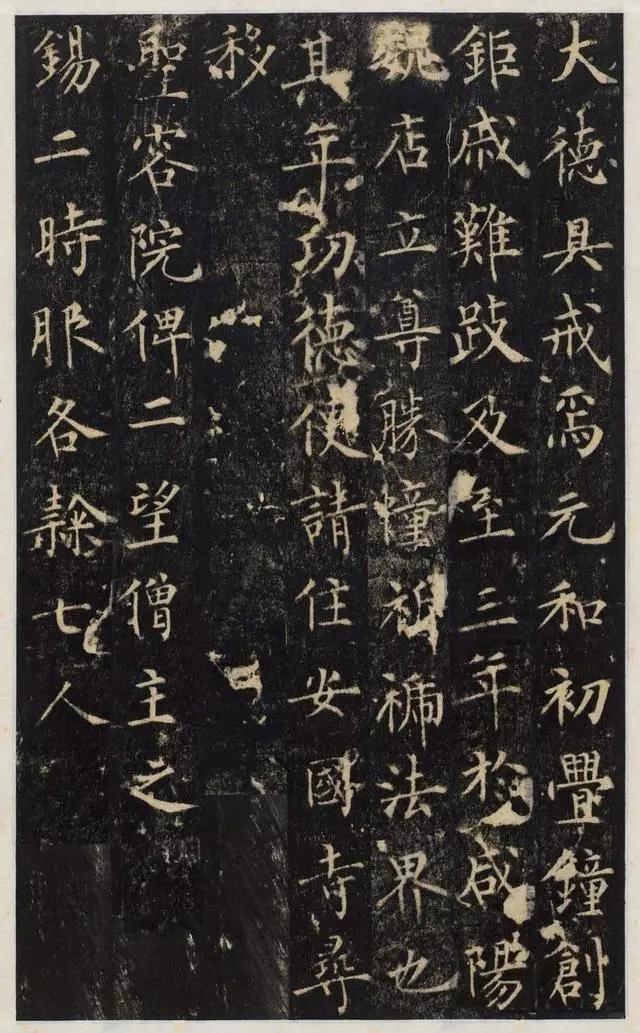 大徳具戒焉元和初疊鐘創
鉅戚難跂及至三年於咸陽
魏店立尊勝幢祗福法界也
其年功徳使請住安國寺尋
移
聖容院俾二望僧主之
錫二時服各隸七人